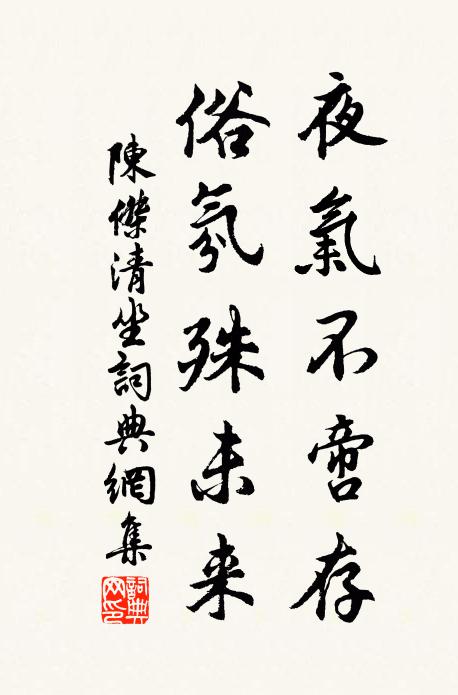 夜氣不啻存
俗氛殊未来
陳傑清坐詞典網集
詞典网印